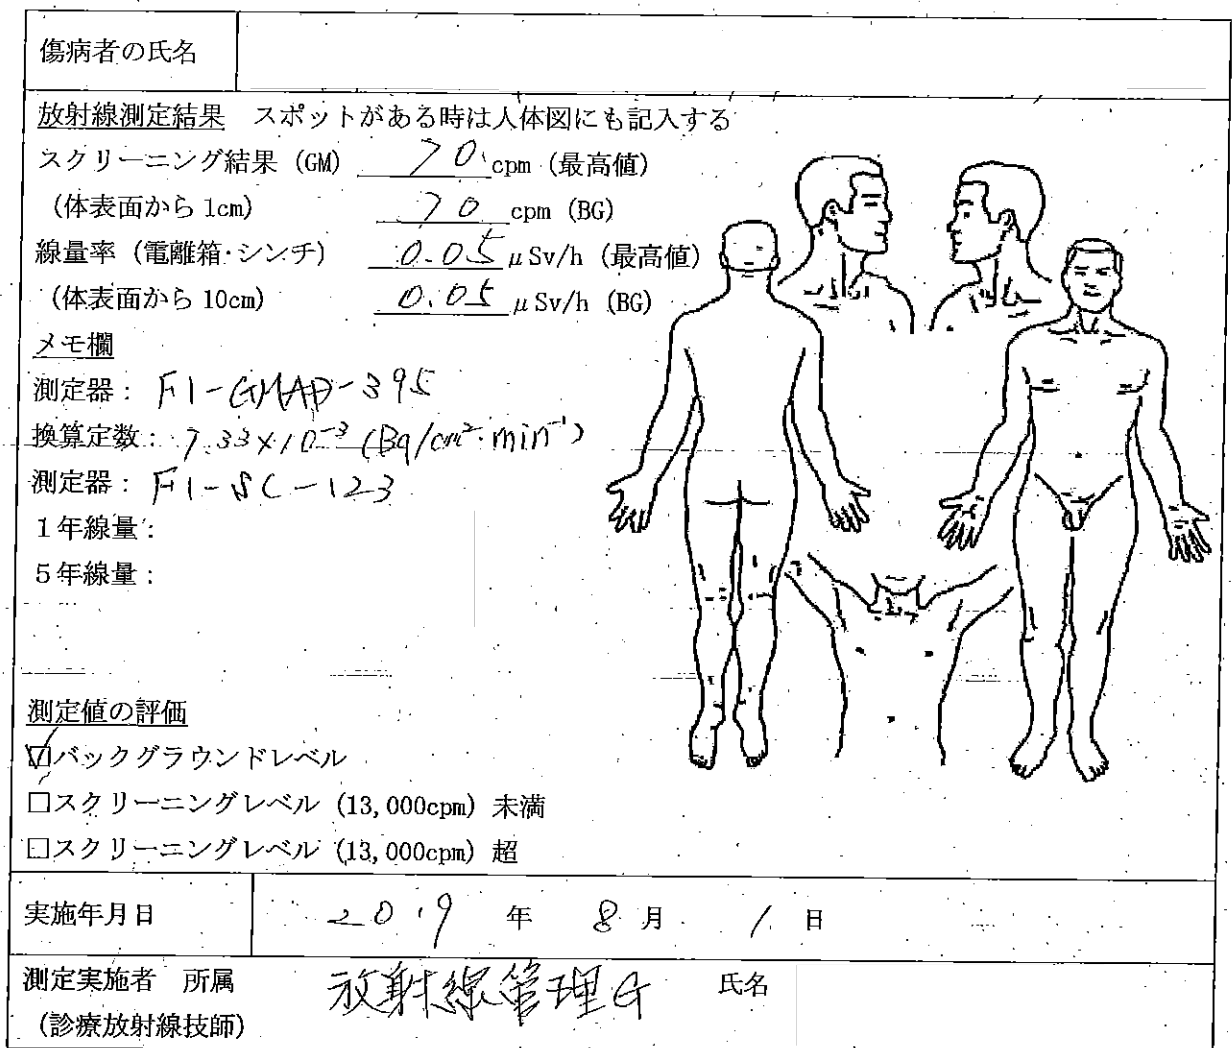 傷病者の氏名
放射線測定結果 スポットがある時は人体図にも記入する
スクリーニング結果 (GM) 70 cpm (最高値)
(体表面から 1cm) 70 cpm (BG)
線量率 (電離箱・シンチ) 0.05 μSv/h (最高値)
(体表面から 10cm) 0.05 μSv/h (BG)
メモ欄
測定器: F1-GMAD-395
換算定数: 7.33×10⁻³ (Bq/cm²・min⁻¹)
測定器: F1-SC-123
1年線量:
5年線量:
測定値の評価
☑バックグラウンドレベル
□スクリーニングレベル (13,000cpm) 未満
□スクリーニングレベル (13,000cpm) 超
実施年月日 2019 年 8 月 1 日
測定実施者 所属 放射線管理G 氏名
(診療放射線技師)